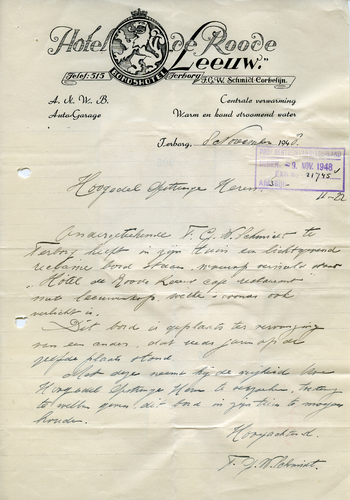 Hotel de Roode
Leeuw."
BONDSHOTEL
Telef: 515 Terborg J.G.W. Schmidt-Corbelijn.
A. N. W. B. Centrale verwarming
Auto-Garage Warm en koud stroomend water
Terborg, 8 November 1948.
9 NOV. 1948
21745
Hoogedel Gestrenge Heeren
Ondergetekende F. G. W. Schmidt te
Terborg heeft in zijn tuin een lichtgevend
reclame bord staan, waarop vermeld staat
"Hotel de Roode Leeuw café restaurant
met leeuwenkop, welke 's avonds ook
verlicht is.
Dit bord is geplaatst ter vervanging
van een ander, dat reeds jaren op de
zelfde plaats stond.
Met deze neem hij de vrijheid Uwe
Hoogedel Gestrenge Heeren te verzoeken,
te willen geven, dit bord in zijn tuin te mogen
houden.
Hoogachtend.
F. G. W. Schmidt.